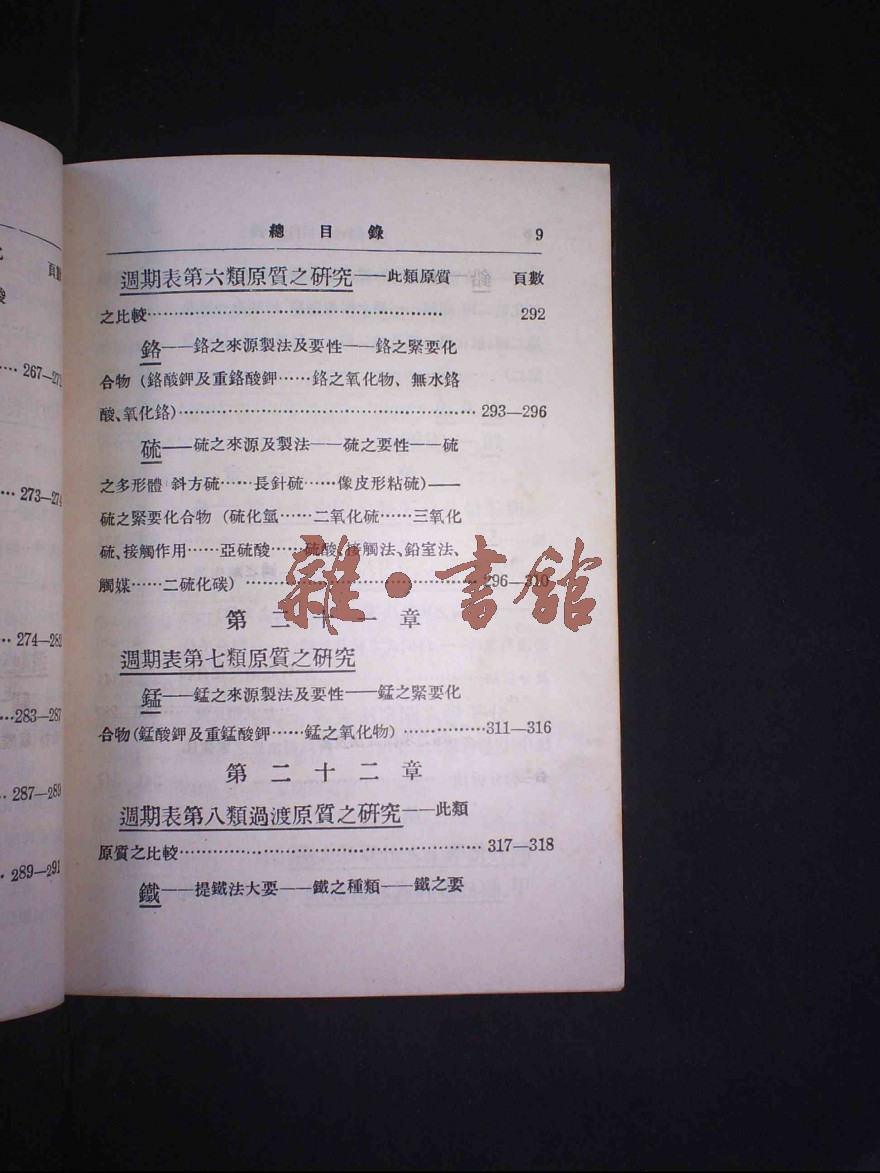 總目錄 9
週期表第六類原質之研究——此類原質 頁數
之比較………………………………………… 292
鉻——鉻之來源製法及要性——鉻之緊要化
合物（鉻酸鉀及重鉻酸鉀……鉻之氧化物、無水鉻
酸、氧化鉻）………………………………………… 293—296
硫——硫之來源及製法——硫之要性——硫
之多形體 斜方硫……長針硫……像皮形粘硫）——
硫之緊要化合物（硫化氫……二氧化硫……三氧化
硫、接觸作用……亞硫酸……硫酸、接觸法、鉛室法、
觸媒……二硫化碳）……………………………… 296—310
第二十一章
週期表第七類原質之研究
錳——錳之來源製法及要性——錳之緊要化
合物(錳酸鉀及重錳酸鉀……錳之氧化物）……………311—316
第二十二章
週期表第八類過渡原質之研究——此類
原質之比較………………………………………… 317—318
鐵——提鐵法大要——鐵之種類——鐵之要
頁數
… 267—272
… 273—274
… 274—282
…283—287
… 287—289
… 289—291
雜·書館